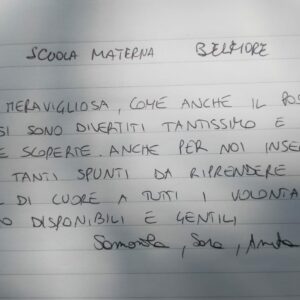 SCUOLA MATERNA BELFIORE
MERAVIGLIOSA, COME ANCHE IL
SI SONO DIVERTITI TANTISSIMO E
SCOPERTE. ANCHE PER NOI INSE
TANTI SPUNTI DA RIPRENDERE
DI CUORE A TUTTI I VOLONTA
DISPONIBILI E GENTILI
Sara,